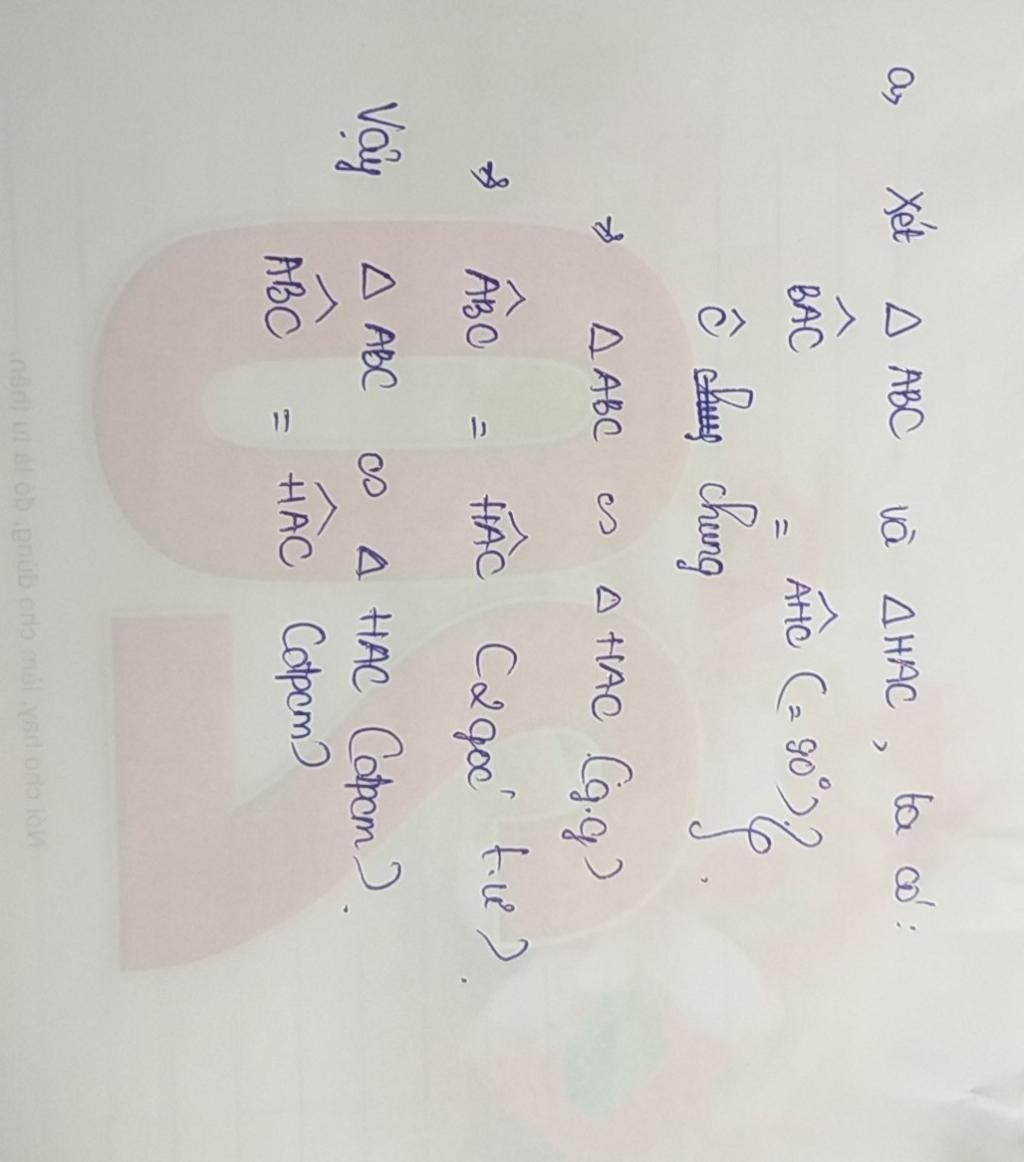 a, Xét Δ ABC và Δ HAC, ta có:
BAC = AHC (= 90°)
Ĉ chung
=> Δ ABC ∽ Δ HAC (g.g)
=> ABC = HAC (2 góc t.ư).
Vậy Δ ABC ∽ Δ HAC (đpcm).
ABC = HAC (đpcm)
02
Nói cho hay, làm cho đúng, đó là tu thân.